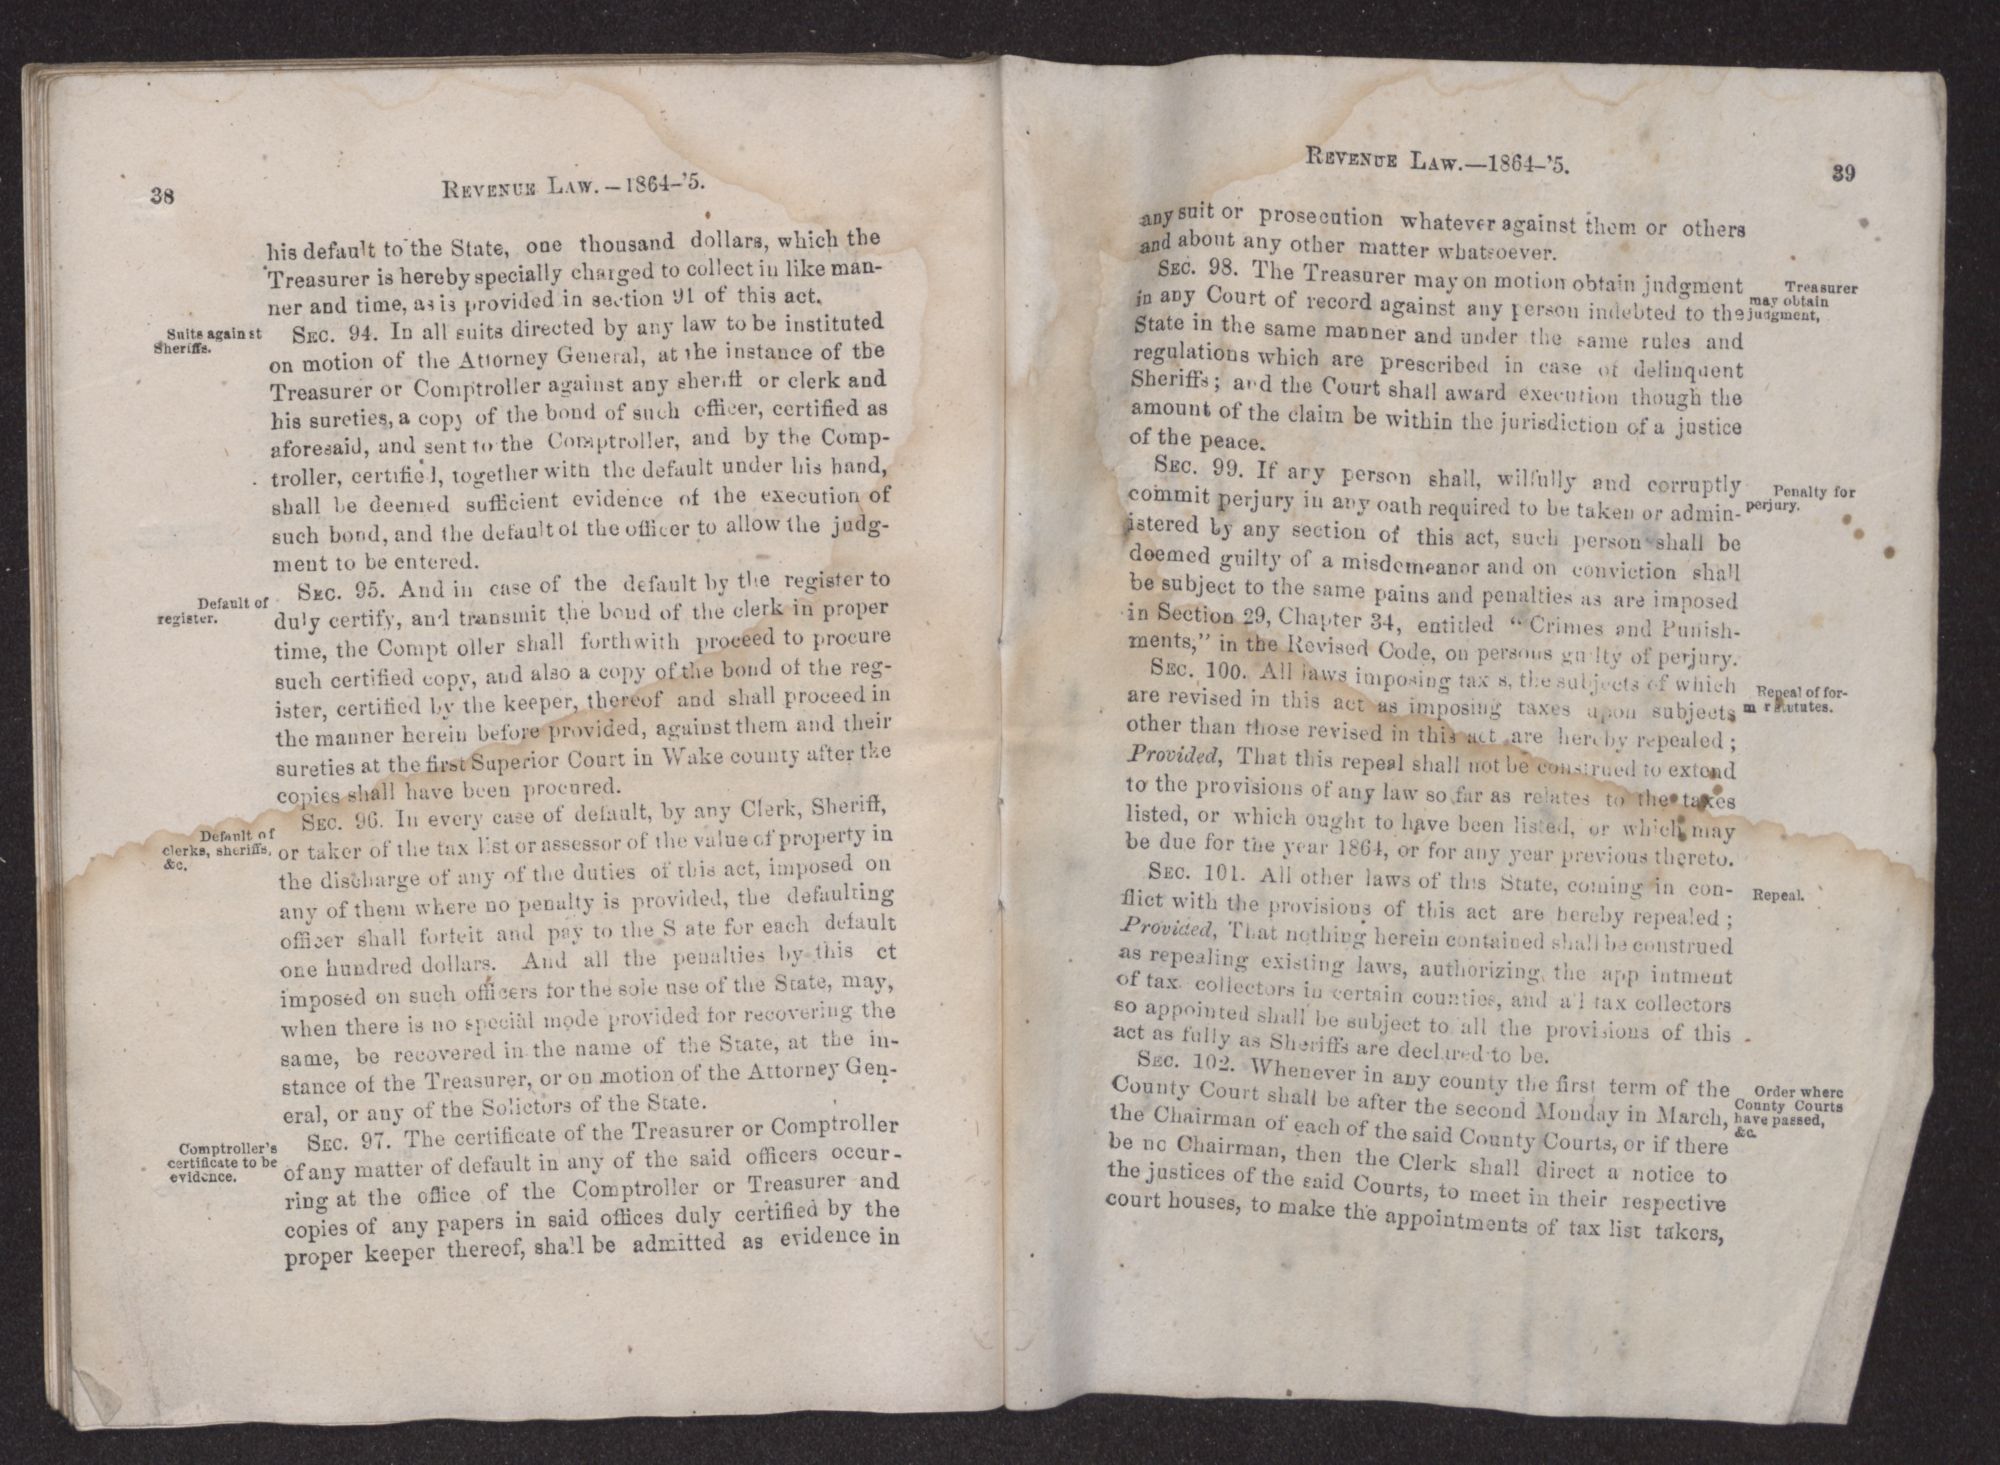 38
REVENUE LAW.—1864-'5.
his default to the State, one thousand dollars, which the
Treasurer is hereby specially charged to collect in like man-
ner and time, as is provided in section 91 of this act.
Suits against
Sheriffs.
SEC. 94. In all suits directed by any law to be instituted
on motion of the Attorney General, at the instance of the
Treasurer or Comptroller against any sheriff or clerk and
his sureties, a copy of the bond of such officer, certified as
aforesaid, and sent to the Comptroller, and by the Comp-
troller, certified, together with the default under his hand,
shall be deemed sufficient evidence of the execution of
such bond, and the default of the officer to allow the judg-
ment to be entered.
Default of
register.
SEC. 95. And in case of the default by the register to
duly certify, and transmit the bond of the clerk in proper
time, the Compt oller shall forthwith proceed to procure
such certified copy, and also a copy of the bond of the reg-
ister, certified by the keeper, thereof and shall proceed in
the manner herein before provided, against them and their
sureties at the first Superior Court in Wake county after the
copies shall have been procured.
Default of
clerks, sheriffs,
&c.
SEC. 96. In every case of default, by any Clerk, Sheriff,
or taker of the tax list or assessor of the value of property in
the discharge of any of the duties of this act, imposed on
any of them where no penalty is provided, the defaulting
officer shall forfeit and pay to the S ate for each default
one hundred dollars. And all the penalties by this ct
imposed on such officers for the sole use of the State, may,
when there is no special mode provided for recovering the
same, be recovered in the name of the State, at the in-
stance of the Treasurer, or on motion of the Attorney Gen-
eral, or any of the Solictors of the State.
Comptroller's
certificate to be
evidence.
SEC. 97. The certificate of the Treasurer or Comptroller
of any matter of default in any of the said officers occur-
ring at the office of the Comptroller or Treasurer and
copies of any papers in said offices duly certified by the
proper keeper thereof, shall be admitted as evidence in
REVENUE LAW.—1864-'5.
39
any suit or prosecution whatever against them or others
and about any other matter whatsoever.
SEC. 98. The Treasurer may on motion obtain judgment
in any Court of record against any person indebted to the
State in the same manner and under the same rules and
regulations which are prescribed in case of delinquent
Sheriffs; and the Court shall award execution though the
amount of the claim be within the jurisdiction of a justice
of the peace.
Treasurer
may obtain
judgment,
SEC. 99. If any person shall, wilfully and corruptly
commit perjury in any oath required to be taken or admin-
istered by any section of this act, such person shall be
deemed guilty of a misdemeanor and on conviction shall
be subject to the same pains and penalties as are imposed
in Section 29, Chapter 34, entitled "Crimes and Punish-
ments," in the Revised Code, on persons gu lty of perjury.
Penalty for
perjury.
SEC. 100. All laws imposing tax s, the subjects of which
are revised in this act as imposing taxes upon subjects
other than those revised in this act are hereby repealed;
Provided, That this repeal shall not be construed to extend
to the provisions of any law so far as relates to the taxes
listed, or which ought to have been listed, or which may
be due for the year 1864, or for any year previous thereto.
Repeal of for-
m r statutes.
SEC. 101. All other laws of this State, coming in con-
flict with the provisions of this act are hereby repealed;
Provided, That nothing herein contained shall be construed
as repealing existing laws, authorizing the app intment
of tax collectors in certain counties, and all tax collectors
so appointed shall be subject to all the provisions of this
act as fully as Sheriffs are declared to be.
Repeal.
SEC. 102. Whenever in any county the first term of the
County Court shall be after the second Monday in March,
the Chairman of each of the said County Courts, or if there
be no Chairman, then the Clerk shall direct a notice to
the justices of the said Courts, to meet in their respective
court houses, to make the appointments of tax list takers,
Order where
County Courts
have passed,
&c.